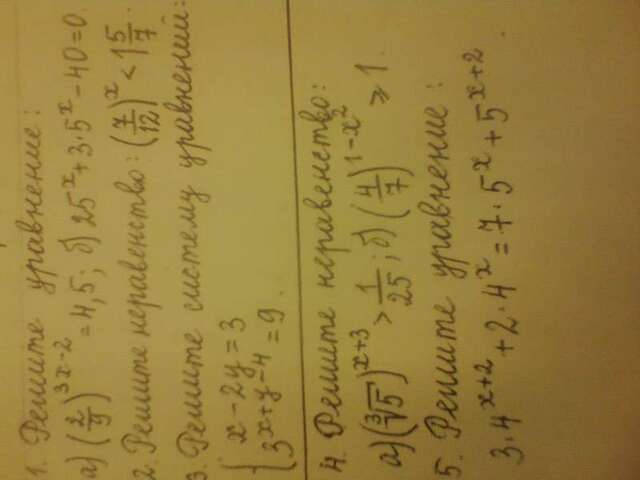 1. Решите уравнение:
а) (2/9)^(3x-2) = 4,5; б) 25^x + 3·5^x - 40 = 0.
2. Решите неравенство: (7/12)^x < 1 5/7.
3. Решите систему уравнений:
{ x - 2y = 3
3^(x+y-4) = 9.
4. Решите неравенство:
а) (∛5)^(x+3) > 1/25; б) (4/7)^(1-x²) ⩾ 1.
5. Решите уравнение:
3·4^(x+2) + 2·4^x = 7·5^x + 5^(x+2).